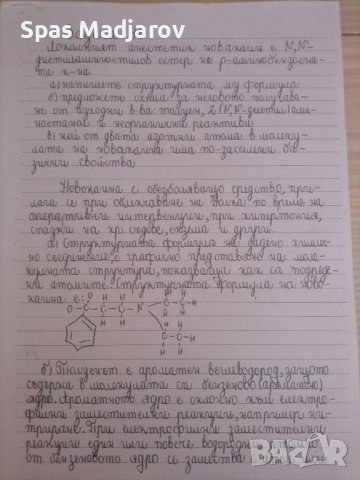 Spas Madjarov
Локалният анестетик новакаин е N,N-
диетиламиноетилов естер на p-аминобензоена-
та к-на.
а) напишете структурната му формула
б) предложете схема за неговото получава-
не от изходни в-ва толуен, 2-(N,N-диетил) ами-
ноетанол и неорганични реактиви
в) кой от двата азотни атома в молеку-
лата на новакаина има по-засилени ба-
зични свойства
Новокаина е обезболяващо средство, при-
лага се при облекчаване на болка по време на
оперативни интервенции, при хипертония,
спазми на кр. съдове, екзема и други.
а) Структурната формула на дадено химич-
но съединение, е графично представяне на моле-
кулната структура, показваща как са подреде-
ни атомите. Структурната формула на ново-
каина е:
б) Толуенът е ароматен въглеводород, защото
съдържа в молекулата си бензеново (ароматно)
ядро. Ароматното ядро е склонно към електро-
филни заместителни реакции, например ни-
триране. При електрофилни заместителни
реакции един или повече водородни атома
от бензеновото ядро се замества
BAZAR
Spas Madjarov